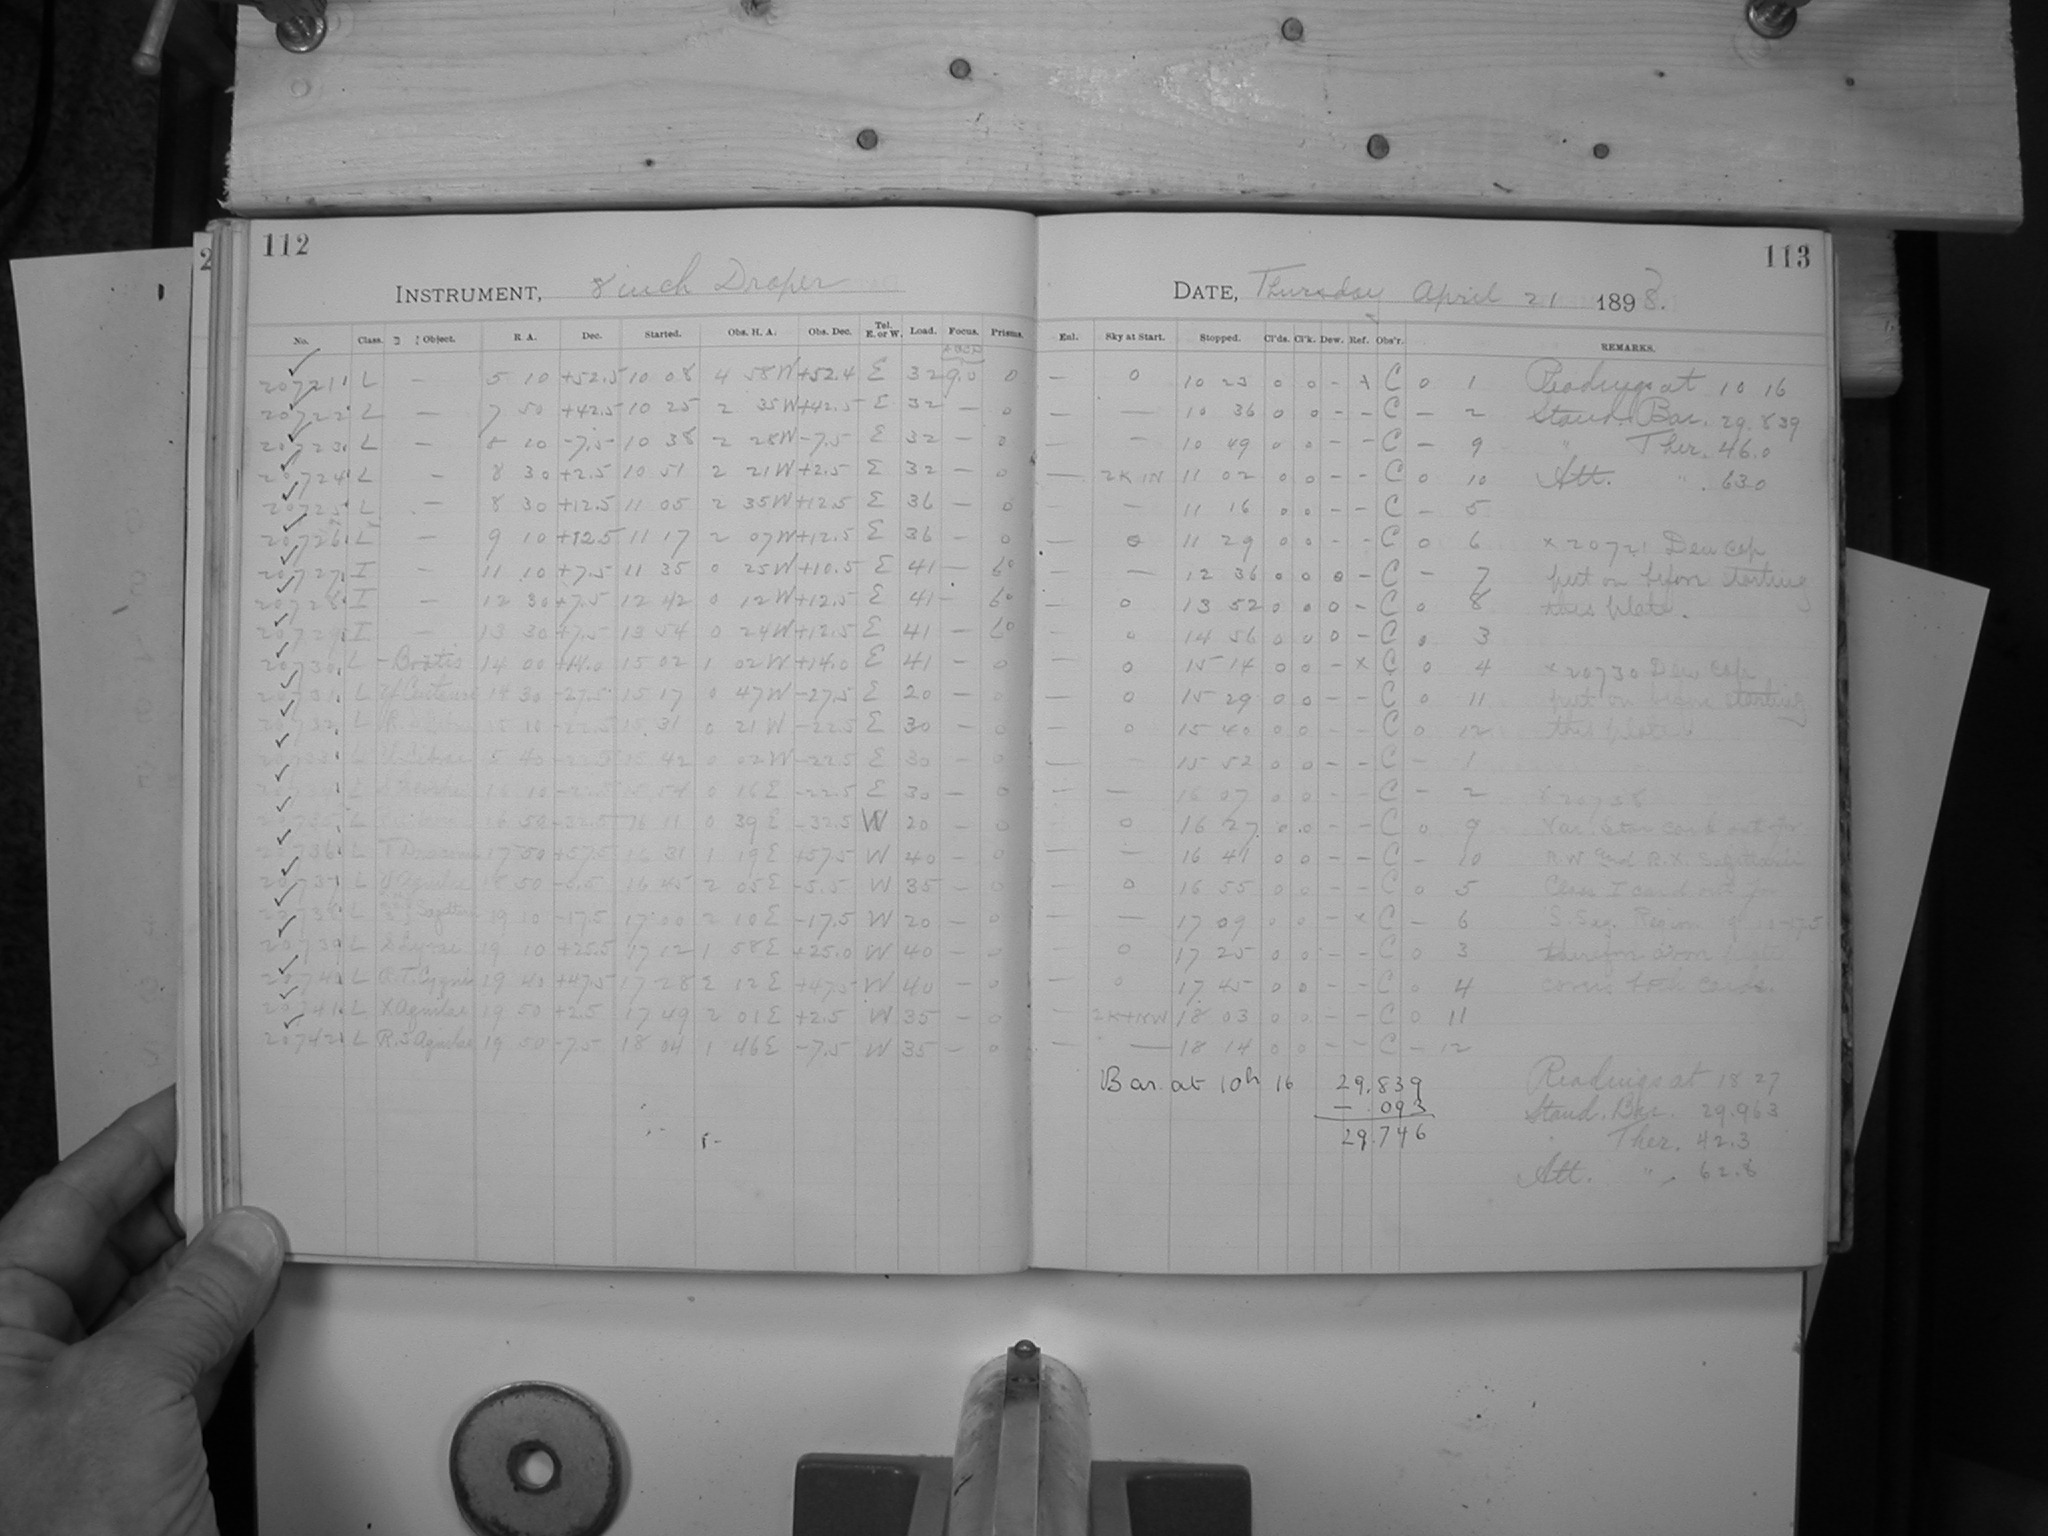 112
INSTRUMENT, 8 inch Draper
No. Class. Object. R. A. Dec. Started. Obs. H. A. Obs. Dec. Tel. E. or W. Load. Focus. Prisms.
20721 L — 5 10 +52.5 10 08 4 58 W +52.4 E 32 9.0 0
20722 L — 7 50 +42.5 10 25 2 35 W +42.5 E 32 — 0
20723 L — 8 10 -7.5 10 38 2 28 W -7.5 E 32 — 0
20724 L — 8 30 +2.5 10 51 2 21 W +2.5 E 32 — 0
20725 L — 8 30 +12.5 11 05 2 35 W +12.5 E 36 — 0
20726 L — 9 10 +12.5 11 17 2 07 W +12.5 E 36 — 0
20727 I — 11 10 +7.5 11 35 0 25 W +10.5 E 41 — 60
20728 I — 12 30 +7.5 12 42 0 12 W +12.5 E 41 — 60
20729 I — 13 30 +7.5 13 54 0 24 W +12.5 E 41 — 60
20730 L - Boötis 14 00 +14.0 15 02 1 02 W +14.0 E 41 — 0
20731 L 14 30 -27.5 15 17 0 47 W -27.5 E 20 — 0
20732 L R 15 10 -22.5 15 31 0 21 W -22.5 E 30 — 0
L Librae 15 40 -22.5 15 42 0 02 W -22.5 E 30 — 0
L S 16 10 -22.5 15 54 0 16 E -22.5 E 30 — 0
20735 L 16 50 -32.5 16 11 0 39 E -32.5 W 20 — 0
20736 L T Draconis 17 50 +57.5 16 31 1 19 E +57.5 W 40 — 0
20737 L Aquilae 18 50 -5.5 16 45 2 05 E -5.5 W 35 — 0
20738 L Sagittarii 19 10 -17.5 17 00 2 10 E -17.5 W 20 — 0
20739 L S Lyrae 19 10 +25.5 17 12 1 58 E +25.0 W 40 — 0
20740 L R.T. Cygni 19 40 +47.5 17 28 2 12 E +47.5 W 40 — 0
20741 L X Aquilae 19 50 +2.5 17 49 2 01 E +2.5 W 35 — 0
20742 L R.S Aquilae 19 50 -7.5 18 04 1 46 E -7.5 W 35 — 0
113
DATE, Thursday April 21 1898.
Enl. Sky at Start. Stopped. Cl'ds. Cl'k. Dew. Ref. Obs'r. REMARKS.
— 0 10 23 0 0 - x C 0 1 Readings at 10 16
— — 10 36 0 0 - - C - 2 Stand. Bar. 29.839
— — 10 49 0 0 - - C - 9 " Ther. 46.0
— 2K IN 11 02 0 0 - - C 0 10 Att. " . 63.0
— — 11 16 0 0 - - C - 5
— 0 11 29 0 0 - - C 0 6 x 20721 Dew cap
— — 12 36 0 0 0 - C - 7 put on before starting
— 0 13 52 0 0 0 - C 0 8 this plate.
— 0 14 56 0 0 0 - C 0 3
— 0 15 14 0 0 - x C 0 4 x 20730 Dew cap
— 0 15 29 0 0 - - C 0 11 put on before starting
— 0 15 40 0 0 - - C 0 12 this plate.
— — 15 52 0 0 - - C - 1
— — 16 07 0 0 - - C - 2 x 20738
— 0 16 27 0 0 - - C 0 9 Var. Star card out for
— — 16 41 0 0 - - C - 10 R.W and R.X. Sagittarii
— 0 16 55 0 0 - - C 0 5 Class I card out for
— — 17 09 0 0 - x C - 6 S. Sag. Region 19 10 -17.5
— 0 17 25 0 0 - - C 0 3 therefore
— 0 17 45 0 0 - - C 0 4 covers both cards.
— 2K+NW 18 03 0 0 - - C 0 11
— — 18 14 0 0 - - C - 12
Bar. at 10h 16 29.839
- .093
29.746
Readings at 18 27
Stand. Bar. 29.963
Ther. 42.3
Att. " 62.8